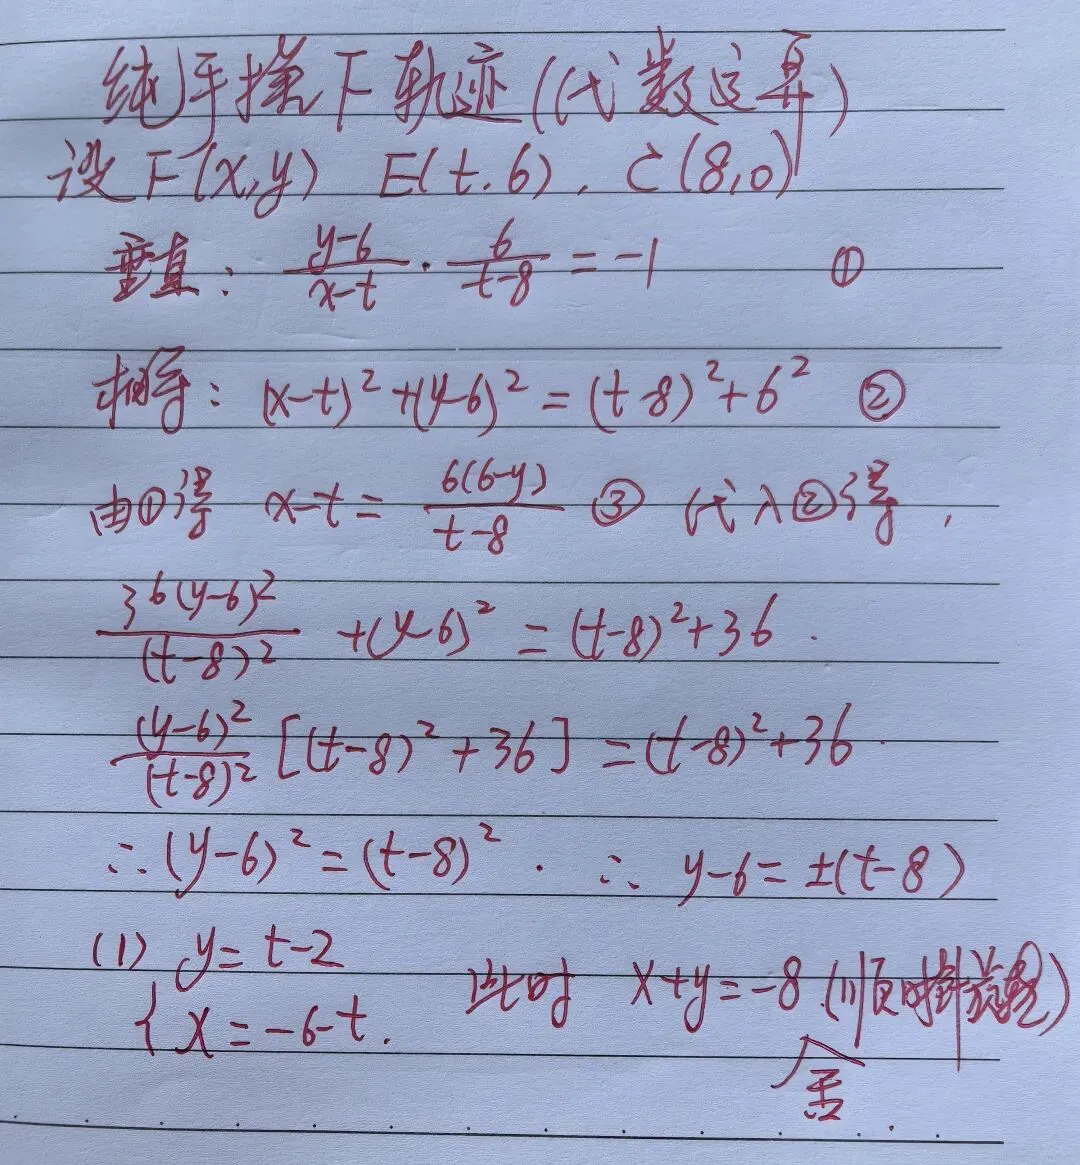 纯手搓下轨迹(代数运算)
设F(x,y) E(t.6). C(8,0)
垂直: \frac{y-6}{x-t} · \frac{6}{t-8} = -1 ①
相等: (x-t)²+(y-6)² = (t-8)²+6² ②
由①得 x-t = \frac{6(6-y)}{t-8} ③ 代入②得,
\frac{36(y-6)²}{(t-8)²} +(y-6)² = (t-8)²+36.
\frac{(y-6)²}{(t-8)²} [(t-8)²+36] = (t-8)²+36.
∴(y-6)² = (t-8)². ∴ y-6 = ±(t-8)
(1) { y = t-2
x = -6-t. 此时 x+y = -8.(顺时针旋转)
舍.